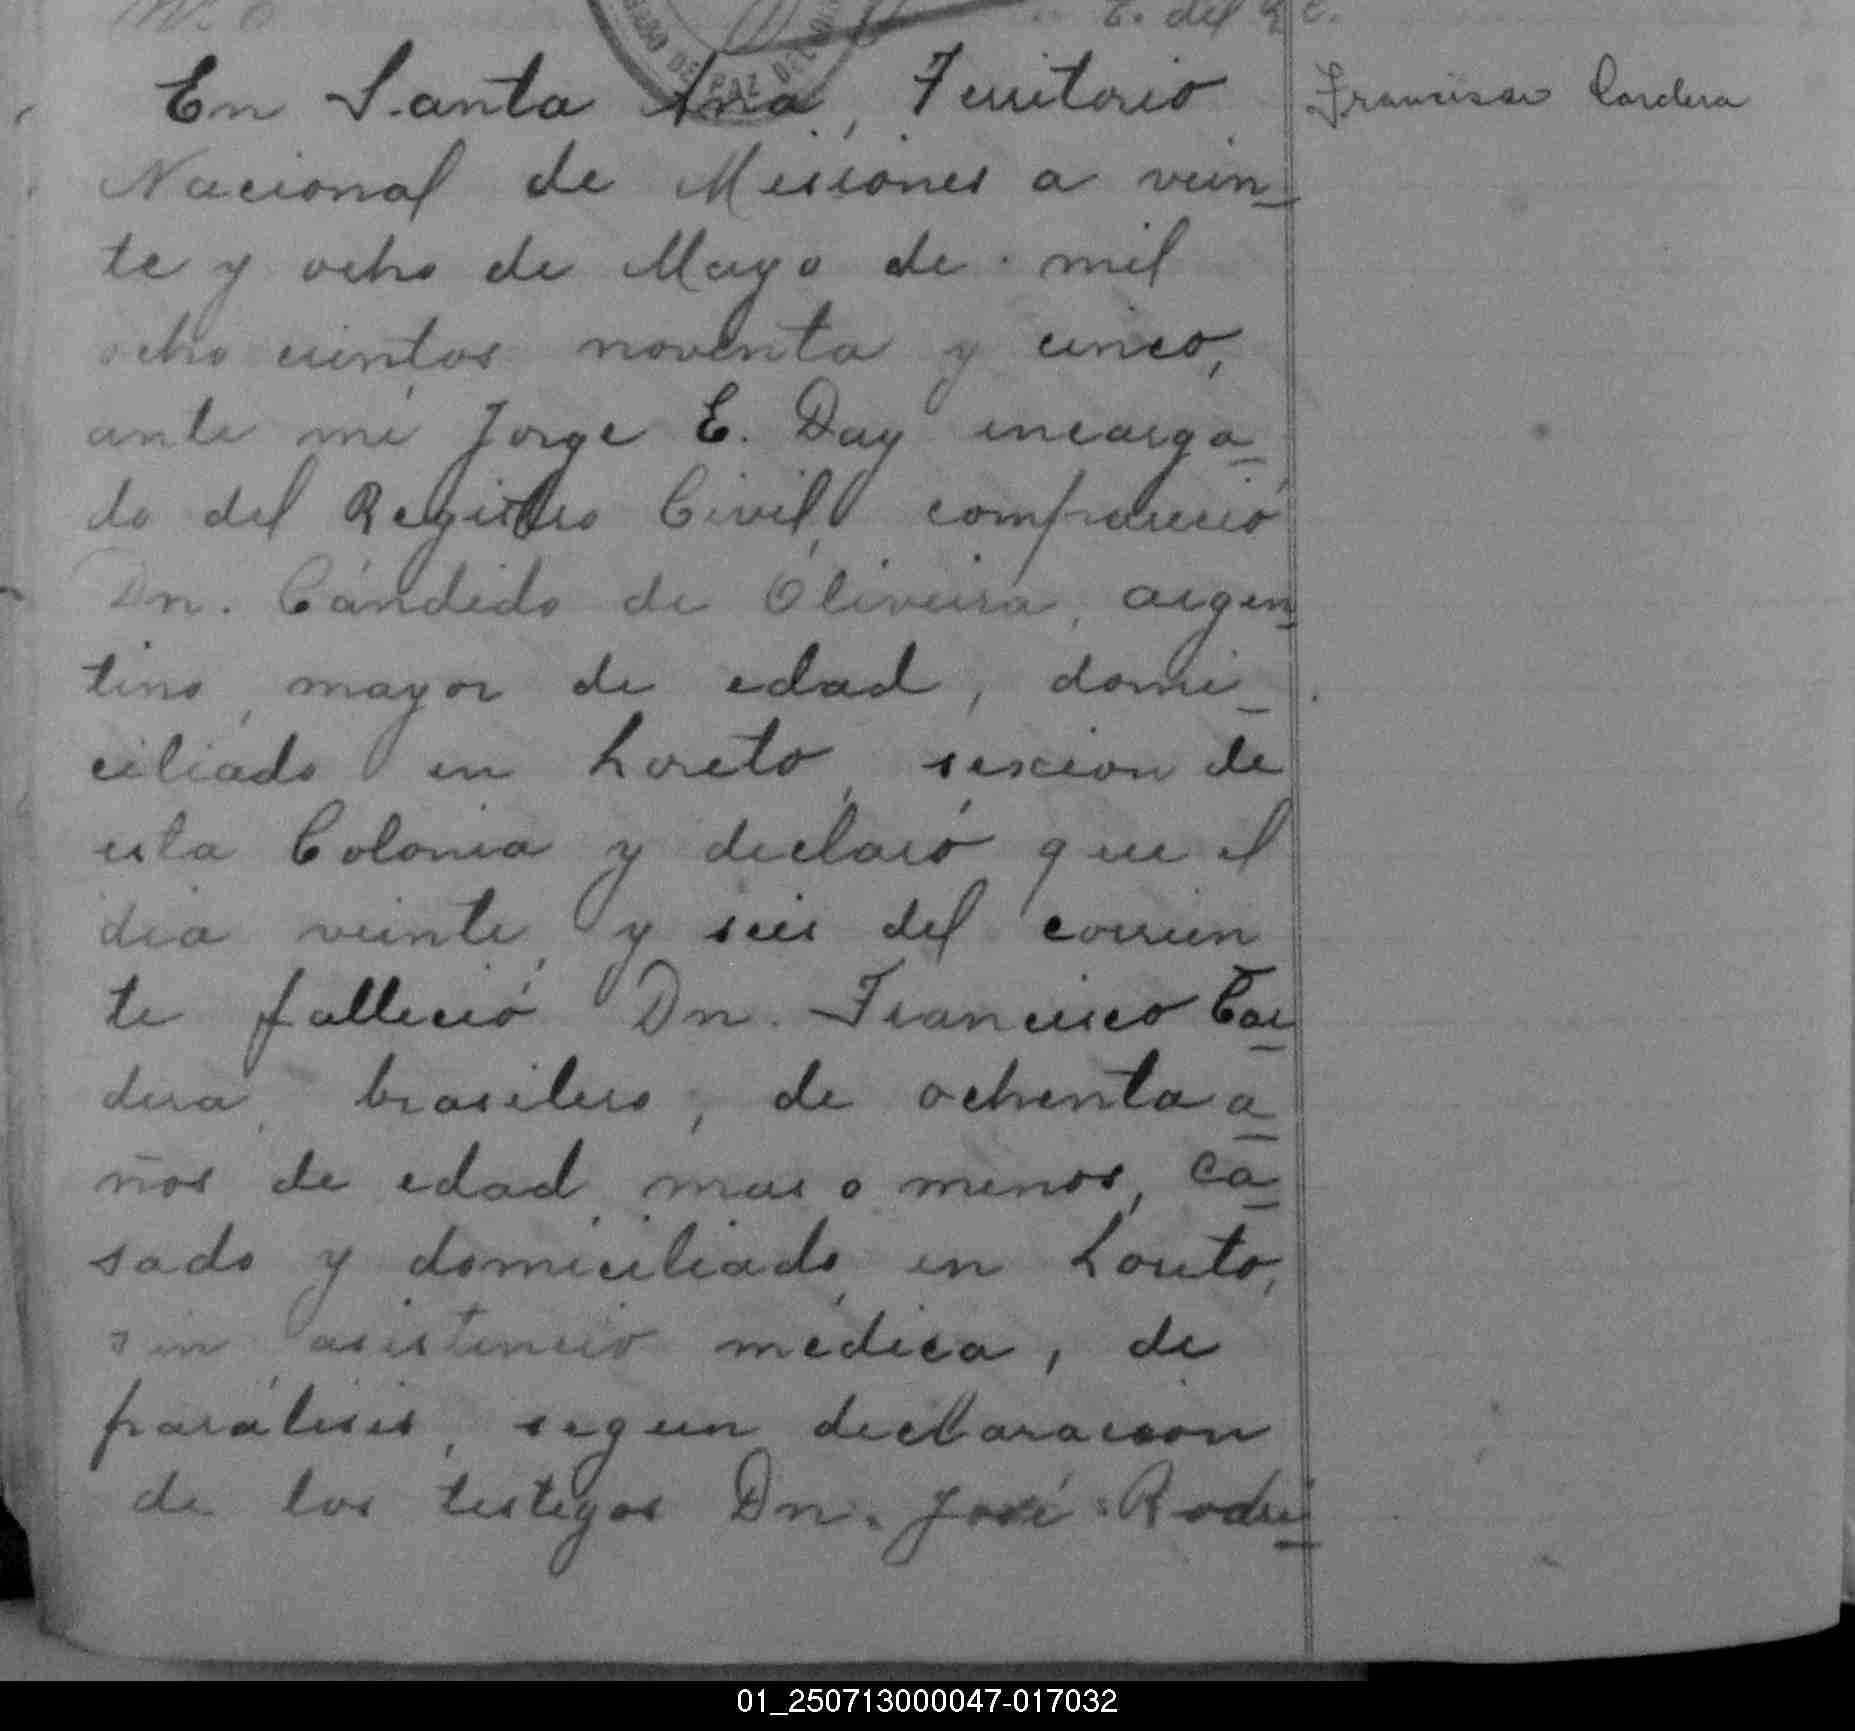 E. del R. C.
En Santa Ana, Territorio
Francisco Cardera
Nacional de Misiones a vein-
te y ocho de Mayo de mil
ocho cientos noventa y cinco,
ante mi Jorge E. Day encarga-
do del Registro Civil, compareció
Dn. Cándido de Oliveira, argen-
tino, mayor de edad, domi-
ciliado en Loreto, sexcion de
esta Colonia y declaró que el
dia veinte y seis del corrien
te falleció Dn. Francisco Car-
dera, brasilero, de ochenta a-
ños de edad mas o menos, ca-
sado y domiciliado en Loreto,
sin asistencia médica, de
parálisis, segun declaracion
de los testigos Dn. José Rodri-
01_250713000047-017032